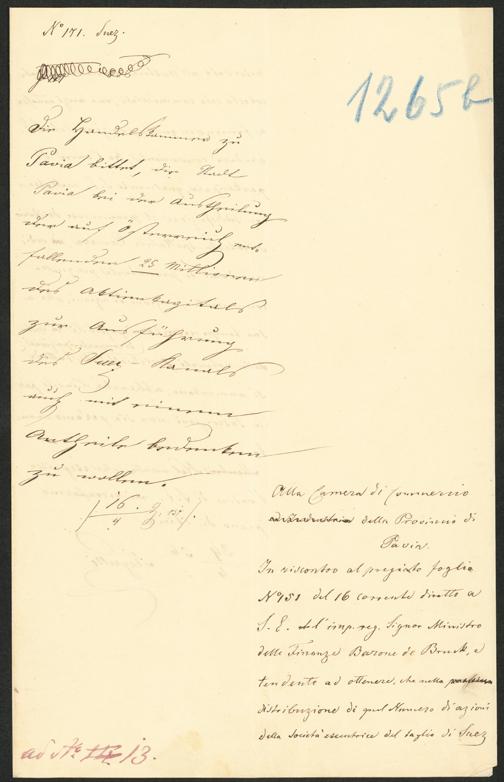 No 171. Suez.
1265b
Die Handelskammer zu
Pavia bittet, die Stadt
Pavia bei der Austheilung
der auf Österreich ent-
fallenden 25 Millionen
des Aktienkapitals
zur Ausführung
des Suez-Kanals
auch mit einem
Antheile bedenken
zu wollen.
16/4
Alla Camera di Commercio
della Provincia di
Pavia.
In riscontro al pregiato foglio
No 951 del 16 corrente diretto a
S. E. del' imp. reg. Signor Ministro
delle Finanze Barone de Bruck, e
tendente ad ottenere, che nella
distribuzione di quel Numero di azioni
della società esecutrice del taglio di Suez
ad No 13.